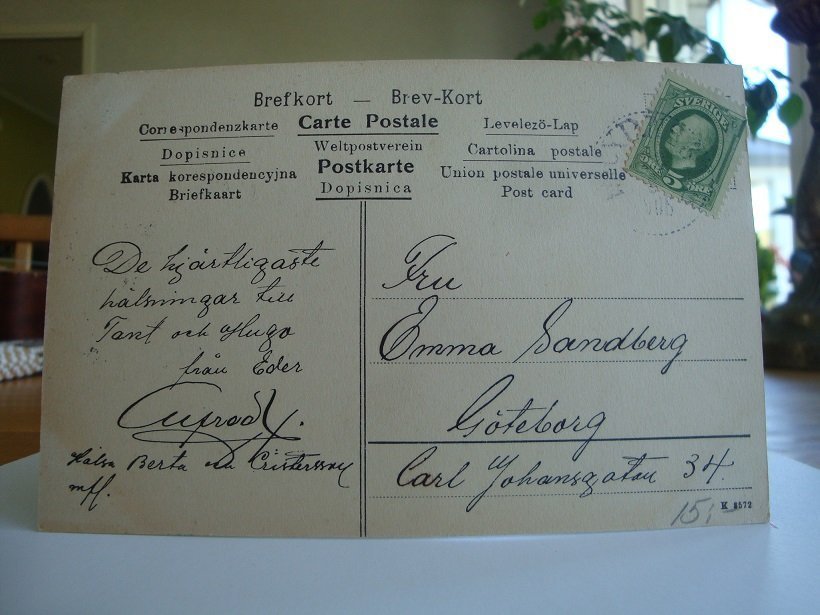 Brefkort — Brev-Kort
Correspondenzkarte Carte Postale Levelezö-Lap
Dopisnice Weltpostverein Cartolina postale
Karta korespondencyjna Postkarte Union postale universelle
Briefkaart Dopisnica Post card
SVERIGE
5
De hjärtligaste
hälsningar till
Tant och Hugo
från Eder
Hälsa Berta och
mfl.
Fru
Emma Sandberg
Göteborg
Carl Johansgatan 34.
15:-
K 8572